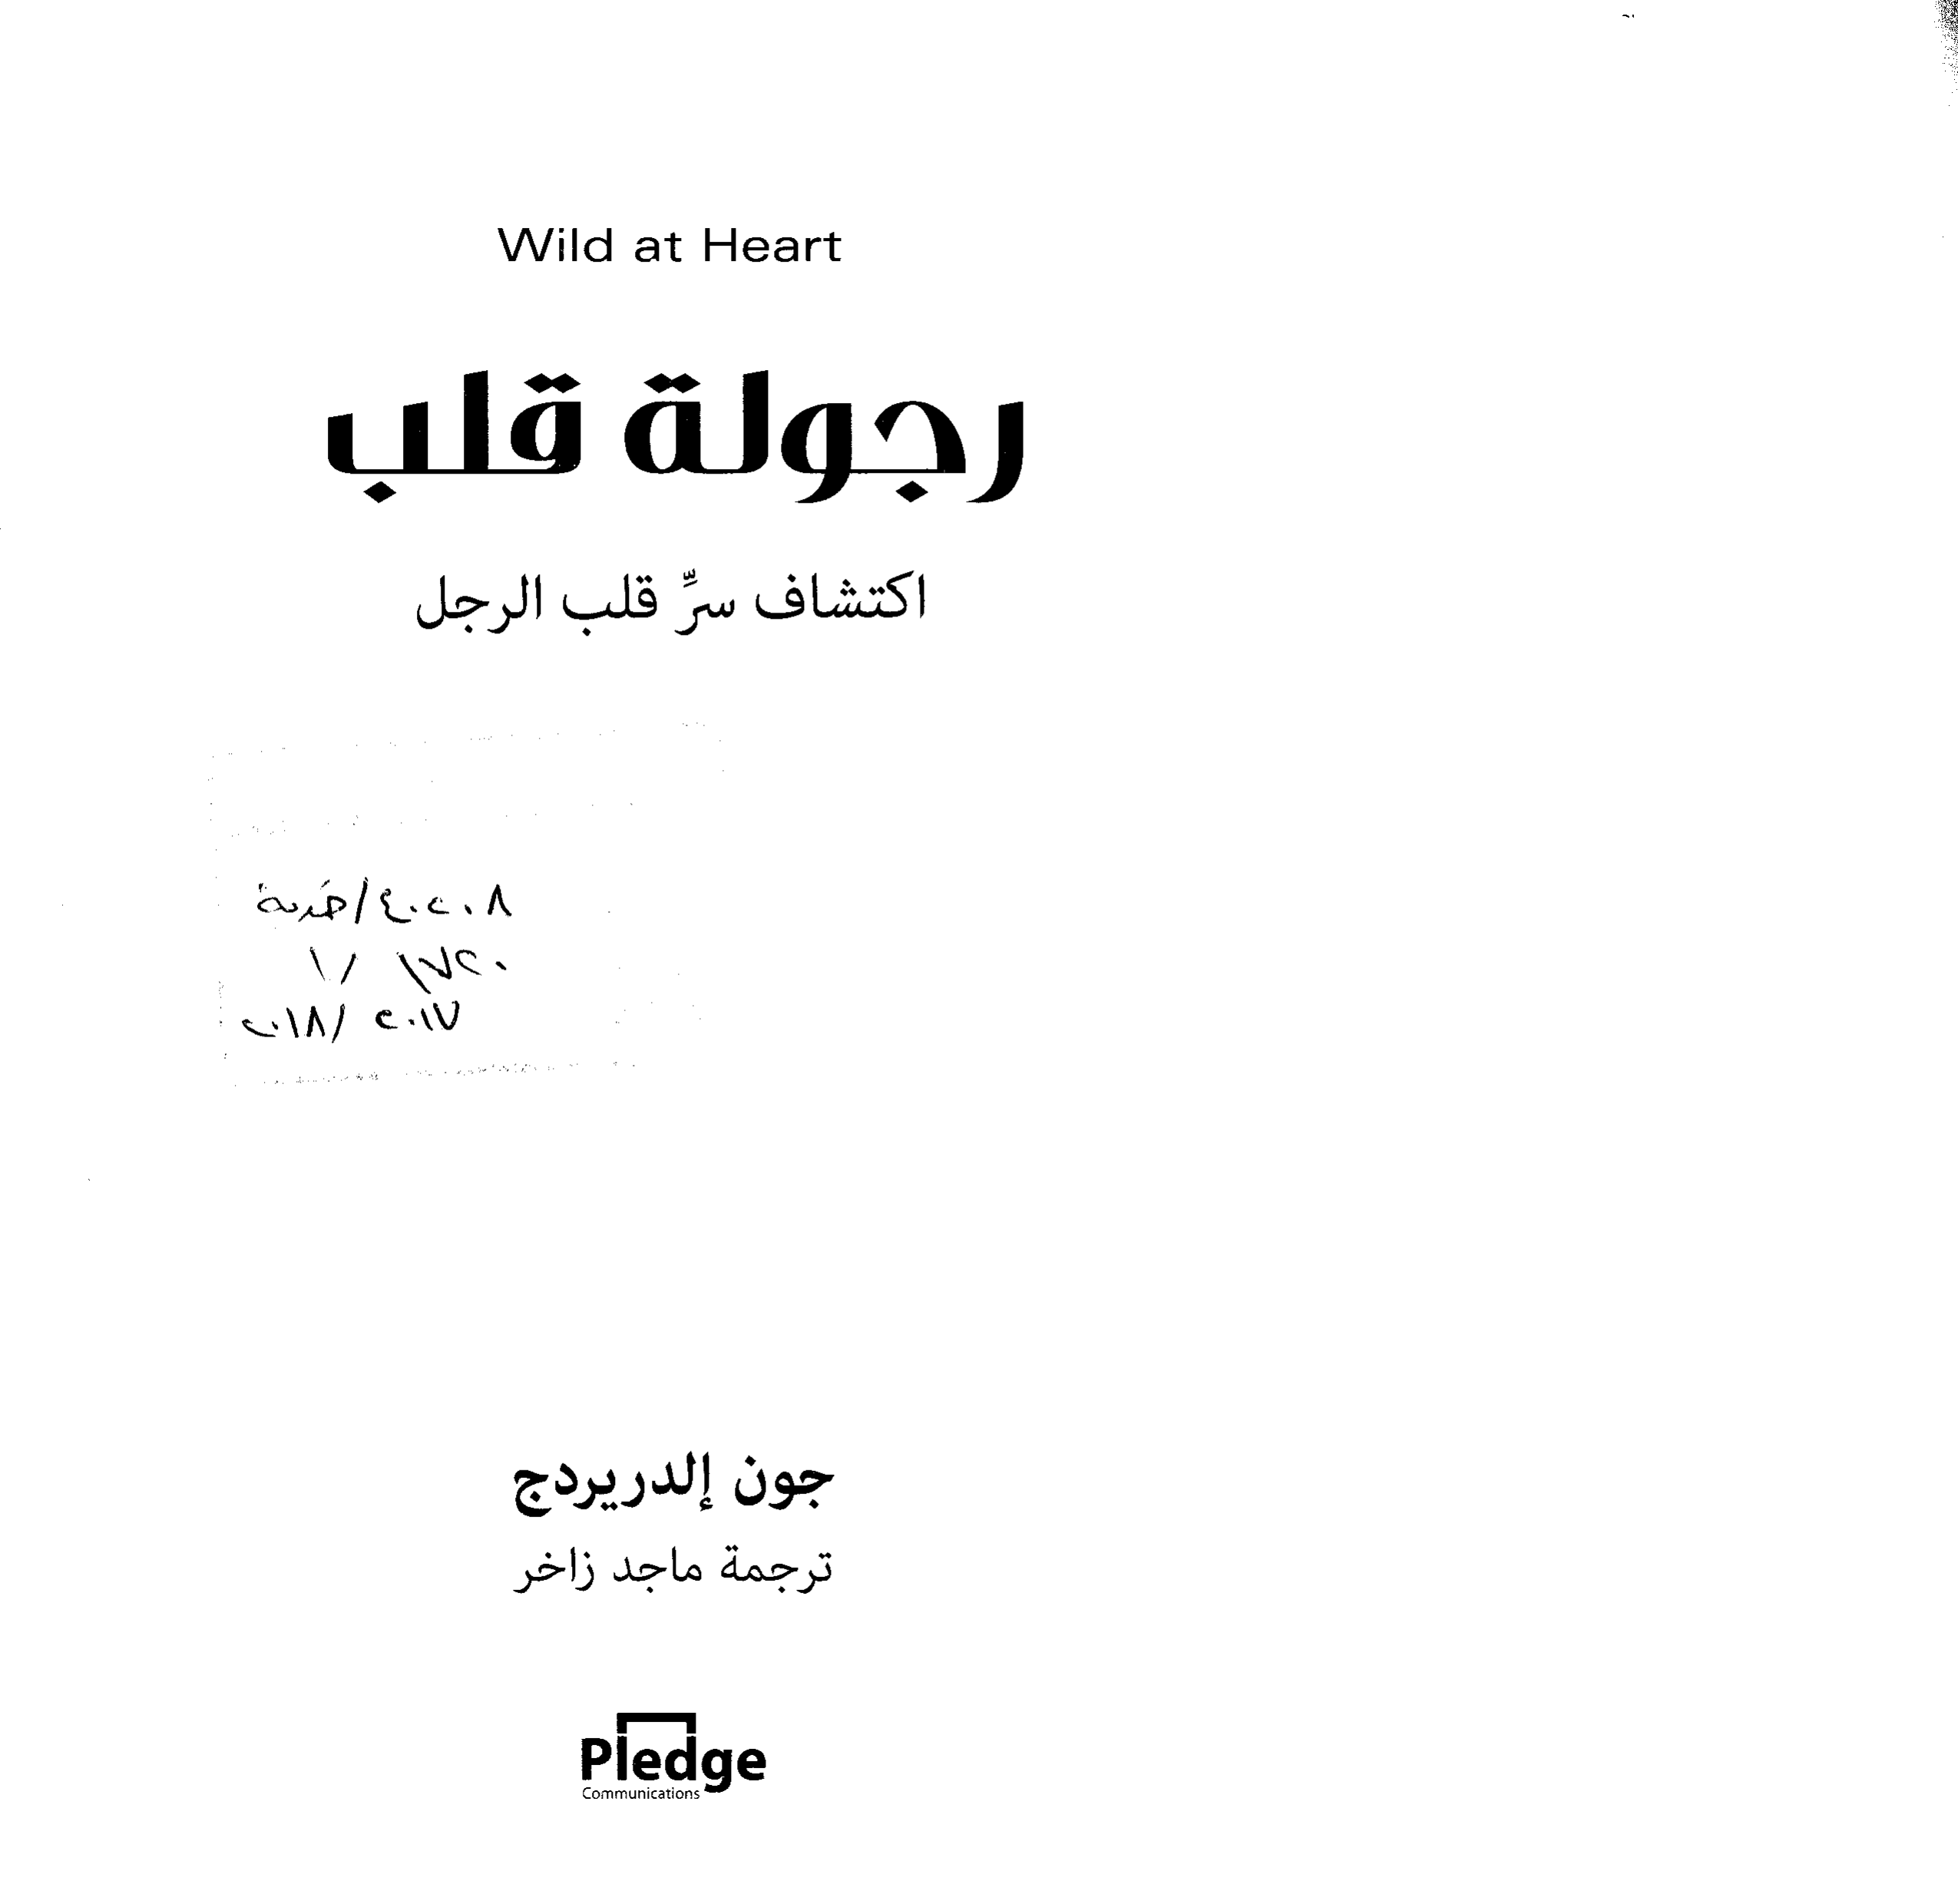 Wild at Heart
رجولة قلب
اكتشاف سرِّ قلب الرجل
٤٠٢٠٨/هدية
٢٠١٨/ ٢٠١٧
جون إلدريردج
ترجمة ماجد زاخر
Pledge
Communications